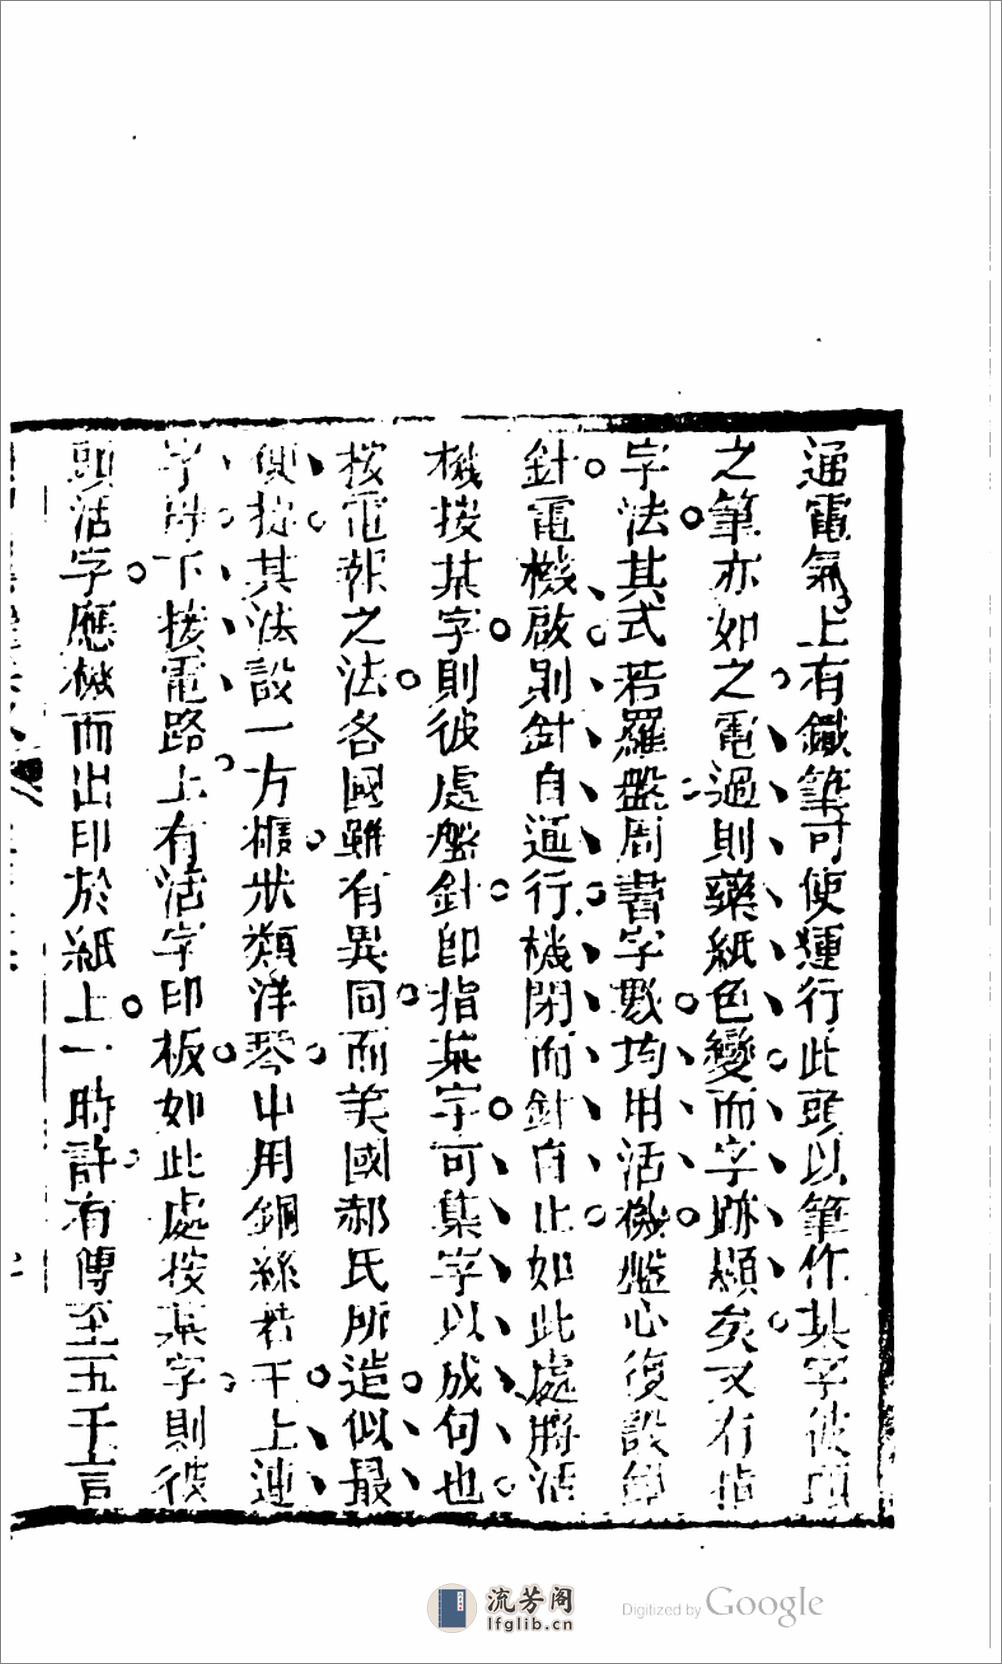 通電氣上有鐵筆可使運行此頭以筆作某字彼頭
之筆亦如之電過則藥紙色變而字跡顯矣又有指
字法其式若羅盤周書字數均用活機盤心復設鋼
針電機啟則針自運行機閉而針自止如此處將活
機按某字則彼處盤針即指某字可集字以成句也
按電報之法各國雖有異同而美國郝氏所造似最
便捷其法設一方櫃狀類洋琴中用銅絲若干上連
字母下接電路上有活字印板如此處按某字則彼
頭活字應機而出印於紙上一時許有傳至五千言
流芳阁
lfglib.cn
Digitized by Google